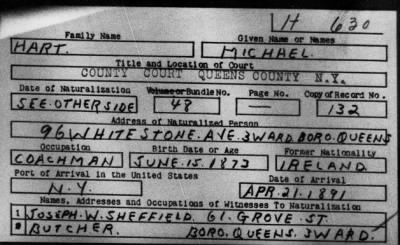 H 630
Family Name Given Name or Names
HART. MICHAEL.
Title and Location of Court
COUNTY COURT QUEENS COUNTY N.Y.
Date of Naturalization Volume or Bundle No. Page No. Copy of Record No.
SEE OTHER SIDE 48 — 132
Address of Naturalized Person
96 WHITESTONE. AVE. 3 WARD. BORO. QUEENS
Occupation Birth Date or Age Former Nationality
COACHMAN JUNE. 15. 1873 IRELAND.
Port of Arrival in the United States Date of Arrival
N.Y. APR. 21. 1891
Names, Addresses and Occupations of Witnesses To Naturalization
1 JOSEPH. W. SHEFFIELD. 61. GROVE. ST.
BUTCHER. BORO. QUEENS. 3 WARD.